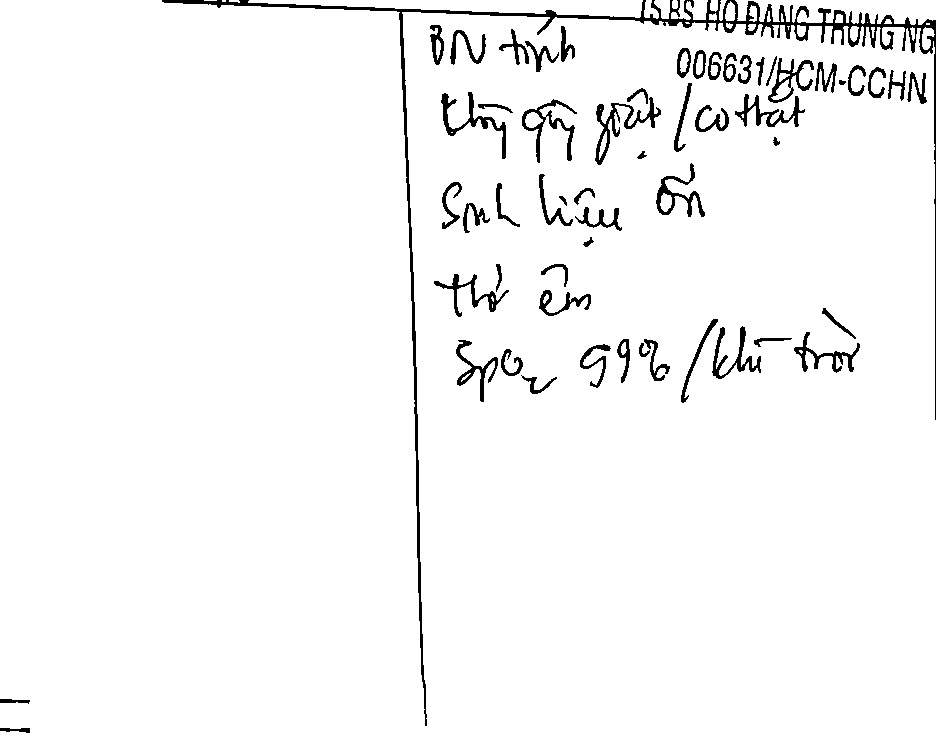 TS.BS HO DANG TRUNG NG
006631/HCM-CCHN
BN tỉnh
Không gồng giật / co thắt
Sinh hiệu ổn
thở êm
SpO₂ 99% / khí trời